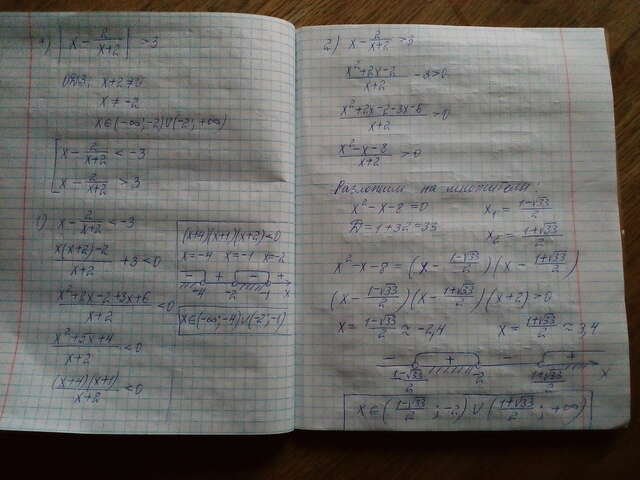 а) |x - 2/(x+2)| > 3
ОДЗ: x+2≠0
x ≠ -2
x∈(-∞;-2)∪(-2;+∞)
[ x - 2/(x+2) < -3
x - 2/(x+2) > 3
1) x - 2/(x+2) < -3
(x(x+2)-2)/(x+2) + 3 < 0
(x²+2x-2+3x+6)/(x+2) < 0
(x²+5x+4)/(x+2) < 0
((x+4)(x+1))/(x+2) < 0
(x+4)(x+1)(x+2)<0
x=-4 x=-1 x=-2
- + - +
-4 -2 -1 x
x∈(-∞;-4)∪(-2;-1)
2) x - 2/(x+2) > 3
(x²+2x-2)/(x+2) - 3>0
(x²+2x-2-3x-6)/(x+2) > 0
(x²-x-8)/(x+2) > 0
Разложим на множители:
x²-x-8=0 x₁ = (1-√33)/2
D=1+32=33 x₂ = (1+√33)/2
x²-x-8 = (x - (1-√33)/2)(x - (1+√33)/2)
(x - (1-√33)/2)(x - (1+√33)/2)(x+2)>0
x = (1-√33)/2 ≈ -2,4 x = (1+√33)/2 ≈ 3,4
- + - +
(1-√33)/2 -2 (1+√33)/2 x
x∈((1-√33)/2;-2)∪((1+√33)/2;+∞)